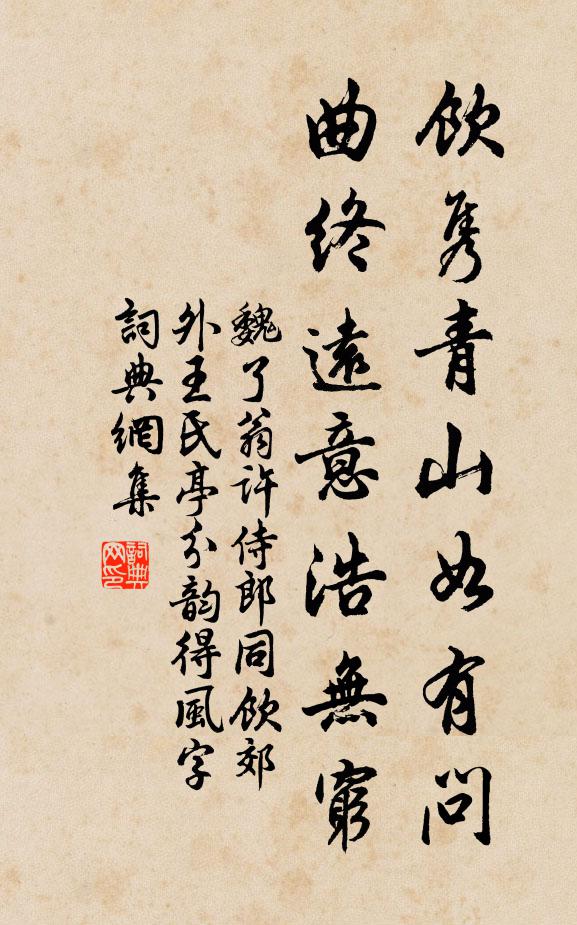 飲隽青山如有問
曲終遠意浩無窮
魏了翁許侍郎同飲郊
外王氏亭分韵得風字
詞典網集
詞典网印